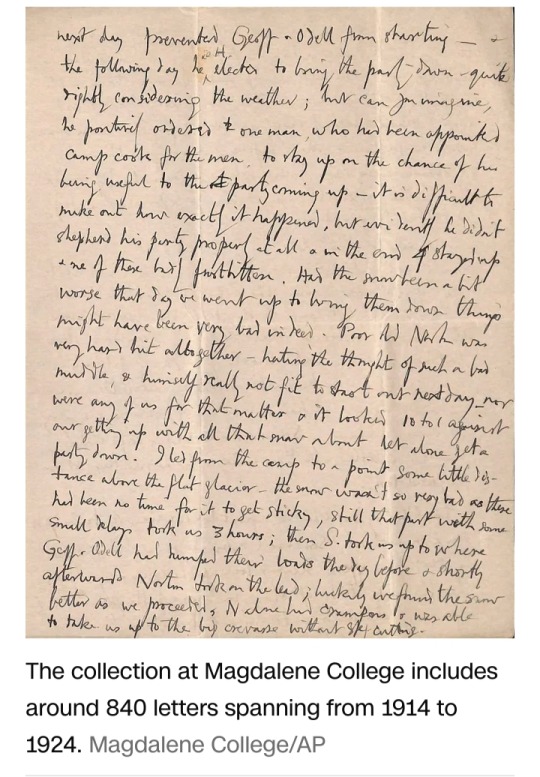 next day prevented Geoff & Odell from starting — &
the following day he elected to bring the party down – quite
rightly considering the weather; but can you imagine,
he positively ordered one man, who had been appointed
camp cook for the men, to stay up on the chance of his
being useful to the party coming up – it is difficult to
make out how exactly it happened, but evidently he didn't
shepherd his party properly at all & in the end 4 stayed up
& one of these badly frostbitten. Had the snow been a bit
worse that day we went up to bring them down things
might have been very bad indeed. Poor old Norton was
very hard hit altogether – hating the thought of such a bad
muddle, & himself really not fit to start out next day, nor
were any of us for that matter & it looked 10 to 1 against
our getting up with all that snow about let alone get a
party down. I led from the camp to a point some little dis-
tance above the flat glacier – the snow wasn't so very bad as there
had been no time for it to get sticky, still that part with some
small delays took us 3 hours; then S. took us up to where
Geoff & Odell had dumped their loads the day before & shortly
afterwards Norton took on the lead; luckily we found the snow
better as we proceeded, N alone had crampons & was able
to take us up to the big crevasse without step cutting.
The collection at Magdalene College includes
around 840 letters spanning from 1914 to
1924. Magdalene College/AP